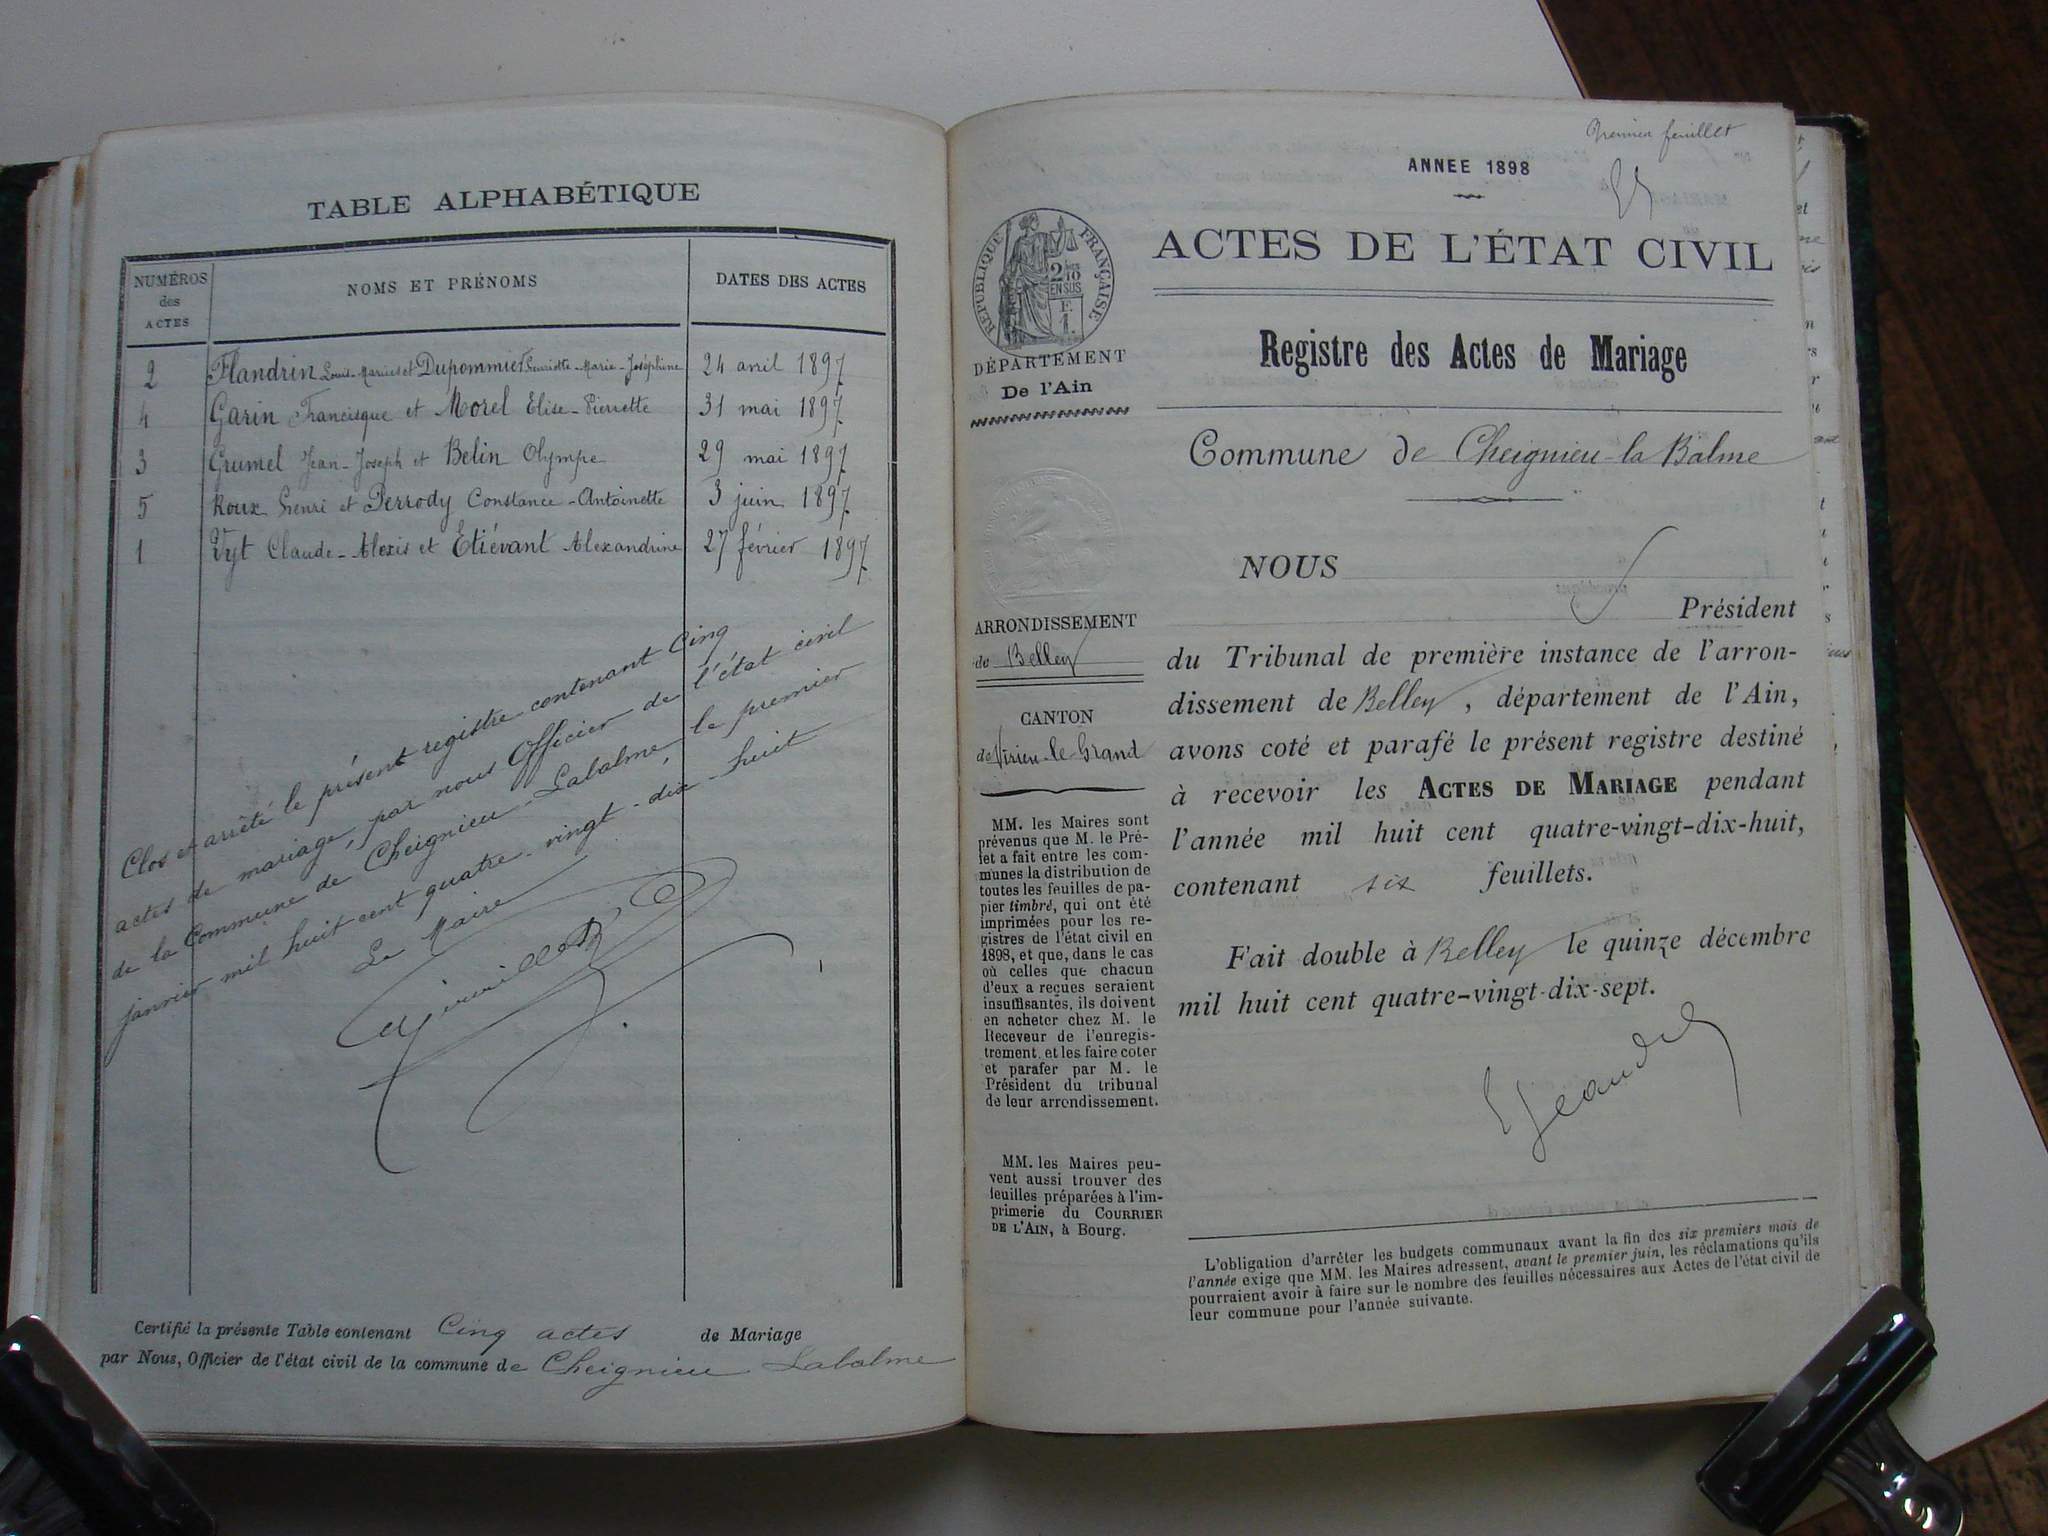 TABLE ALPHABÉTIQUE
NUMÉROS
des
ACTES
NOMS ET PRÉNOMS
DATES DES ACTES
2 Flandrin Louis-Marius et Dupommier Henriette-Marie-Joséphine 24 avril 1897
4 Garin Francisque et Morel Elise-Pierrette 31 mai 1897
3 Grumel Jean-Joseph et Belin Olympe 29 mai 1897
5 Roux Henri et Perrody Constance-Antoinette 3 juin 1897
1 Vyt Claude-Alexis et Etiévant Alexandrine 27 février 1897
Clos et arrêté le présent registre contenant Cinq
actes de mariage, par nous Officier de l'état civil
de la Commune de Cheignieu-Labalme, le premier
janvier mil huit cent quatre-vingt-dix-huit
Le Maire
Certifié la présente Table contenant Cinq actes de Mariage
par Nous, Officier de l'état civil de la commune de Cheignieu Labalme
premier feuillet
ANNEE 1898
ACTES DE L'ÉTAT CIVIL
RÉPUBLIQUE FRANÇAISE
2/10
EN SUS
F.
1.
DÉPARTEMENT
De l'Ain
Registre des Actes de Mariage
Commune de Cheignieu-la Balme
NOUS
Président
du Tribunal de première instance de l'arron-
dissement de Belley, département de l'Ain,
avons coté et parafé le présent registre destiné
à recevoir les ACTES DE MARIAGE pendant
l'année mil huit cent quatre-vingt-dix-huit,
contenant six feuillets.
Fait double à Belley le quinze décembre
mil huit cent quatre-vingt-dix-sept.
ARRONDISSEMENT
de Belley
CANTON
de Virieu-le-Grand
MM. les Maires sont
prévenus que M. le Pré-
fet a fait entre les com-
munes la distribution de
toutes les feuilles de pa-
pier timbré, qui ont été
imprimées pour les re-
gistres de l'état civil en
1898, et que, dans le cas
où celles que chacun
d'eux a reçues seraient
insuffisantes, ils doivent
en acheter chez M. le
Receveur de l'enregis-
trement, et les faire coter
et parafer par M. le
Président du tribunal
de leur arrondissement.
MM. les Maires peu-
vent aussi trouver des
feuilles préparées à l'im-
primerie du COURRIER
DE L'AIN, à Bourg.
L'obligation d'arrêter les budgets communaux avant la fin des six premiers mois de
l'année exige que MM. les Maires adressent, avant le premier juin, les réclamations qu'ils
pourraient avoir à faire sur le nombre des feuilles nécessaires aux Actes de l'état civil de
leur commune pour l'année suivante.